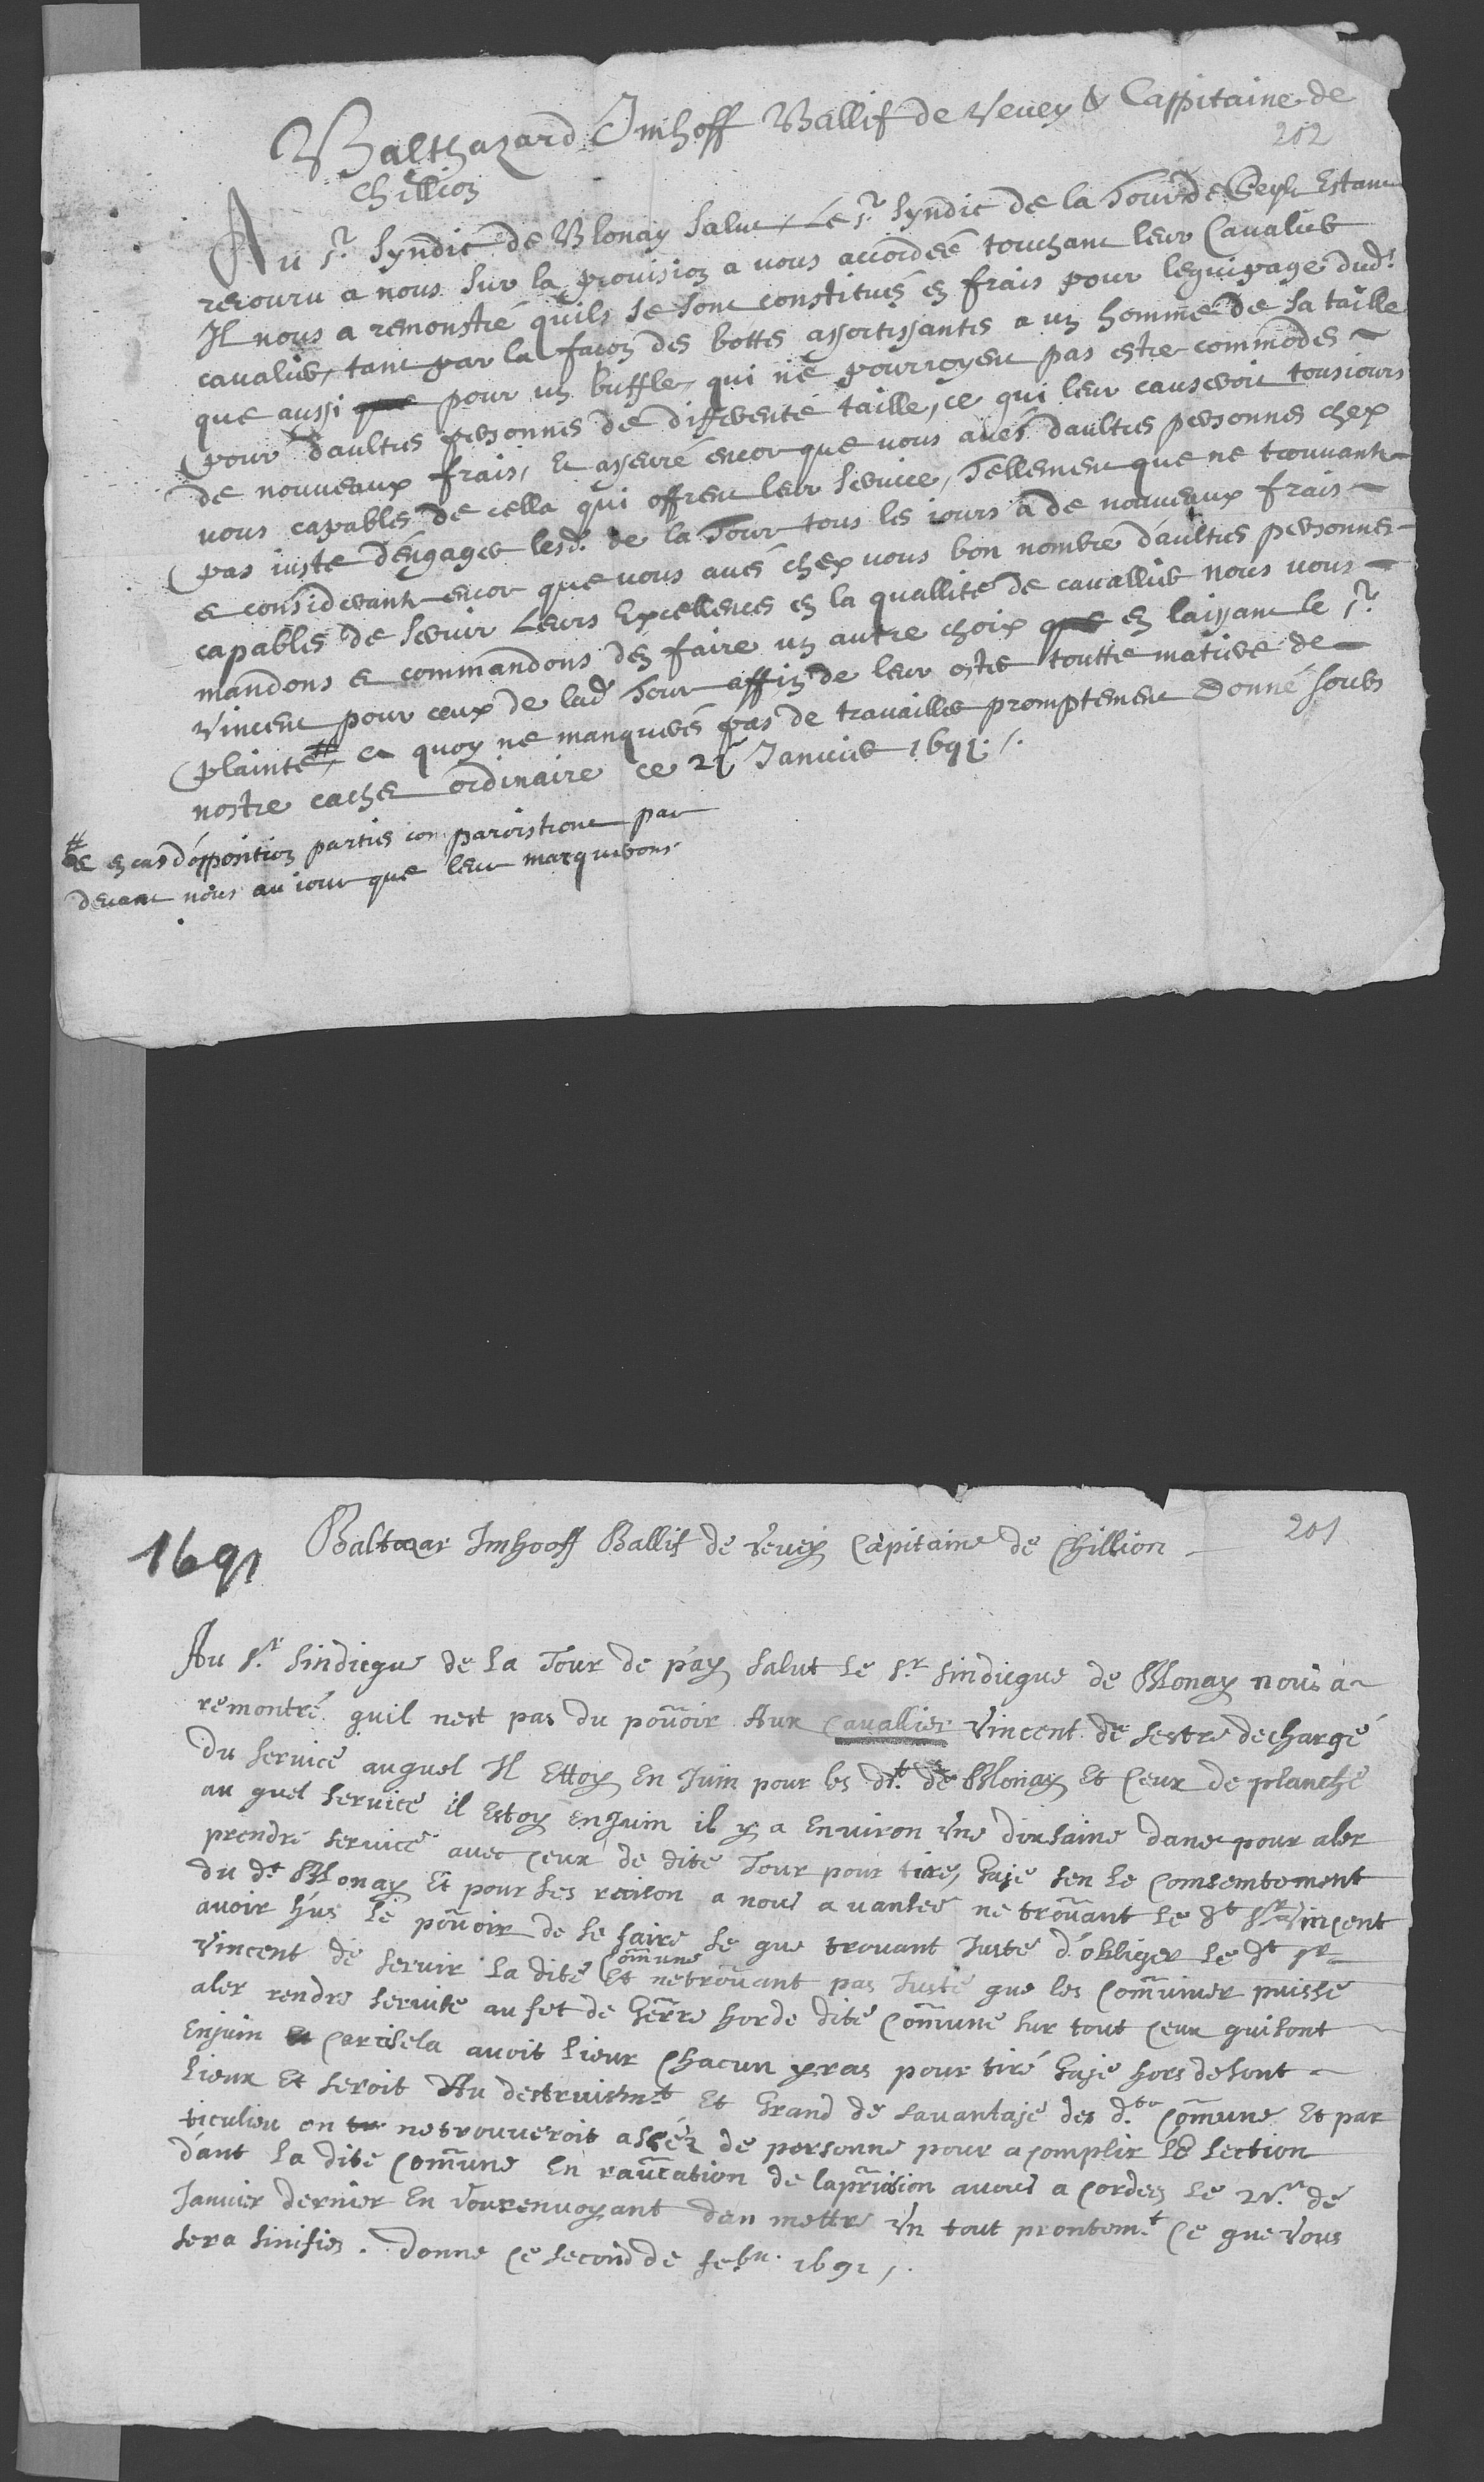 Balthazard Imhoff Ballif de Vevey & Cappitaine de
202
Chillion
Au Sr. Syndic de Blonay Salut, Le Sr. Syndic de la Tour de Peylz Estant
recouru a nous sur la provision a vous accordée touchant leur Cavalier
Il nous a remonstré quils se sont constitués en frais pour lequipage dudt.
cavalier, tant par la facon des bottes assortissantes a un homme de sa taille
que aussi que pour un buffle, qui ne pourroyent pas estre commodes
pour daultres personnes de differente taille, ce qui leur causeroit tousiours
de nouveaux frais, Et asseuré encor que vous avés daultres personnes chez
vous capables de cella qui offrent leur service, Tellement que ne trouvant
pas iuste d'engager lesd. de la Tour tous les iours a de nouveaux frais
et considerant encor que vous avés chez vous bon nombre d'aultres personnes
capables de servir Leurs Excellences en la quallité de cavallier nous vous
mandons et commandons d'en faire un autre choix que en laissant le Sr.
Vincent pour ceux de lad. Tour affin de leur oster toutte matiere de
plainte, # Et quoy ne manquerés pas de travailler promptement Donné soubs
nostre cachet ordinaire ce 22 Janvier 1691 /.
# Et en cas d'opposition parties comparoistront par
devant nous au iour que leur marquerons
1691
Baltazar Imhooff Ballif de Vevey Capitaine de Chillion
201
Au Sr. Sindicque de La Tour de pay Salut Le Sr. Sindicque de Blonay nous a
remontré quil nest pas du pouvoir Aux Cavallier Vincent de sestre dechargé
du service auquel Il Ettoy En Juin pour les dt. de Blonay Et Ceux de planche
au quel service il Estoy En Juin il y a Environ Une dixsaine dane pour aler
prendre service avec ceux de dite Tour pour tirer Gaje sen Le Consentement
du dt. Blonay Et pour Les raison a nous avantee ne trouvant Le dt Sr Vincent
avoir hus Le pouvoir de Le faire Le que trouant Juste d'obliger Le dt Sr
Vincent de servir La dite Commune Et ne trouvant pas Juste que les Communier puisse
aler rendre service au fet de Gerre hor de dite Commune sur tout Ceux qui sont
Enjuin Et Car si sela avoit Lieux Chacun yras pour tiré Gaje hors de sont
Lieux Et seroit Au destruismt Et Grand de savantaje des dte Commune Et par
ticulieu on ne trouveroit assez de personne pour acomplir Le Lection
d'ant La dite Commune En de la provision avous a Cordee Le de
Janvier dernier En Vous renvoyant dan mettre Un tout prontemt Ce que Vous
sera sinifies. Donne Ce second de febr. 1691 /.